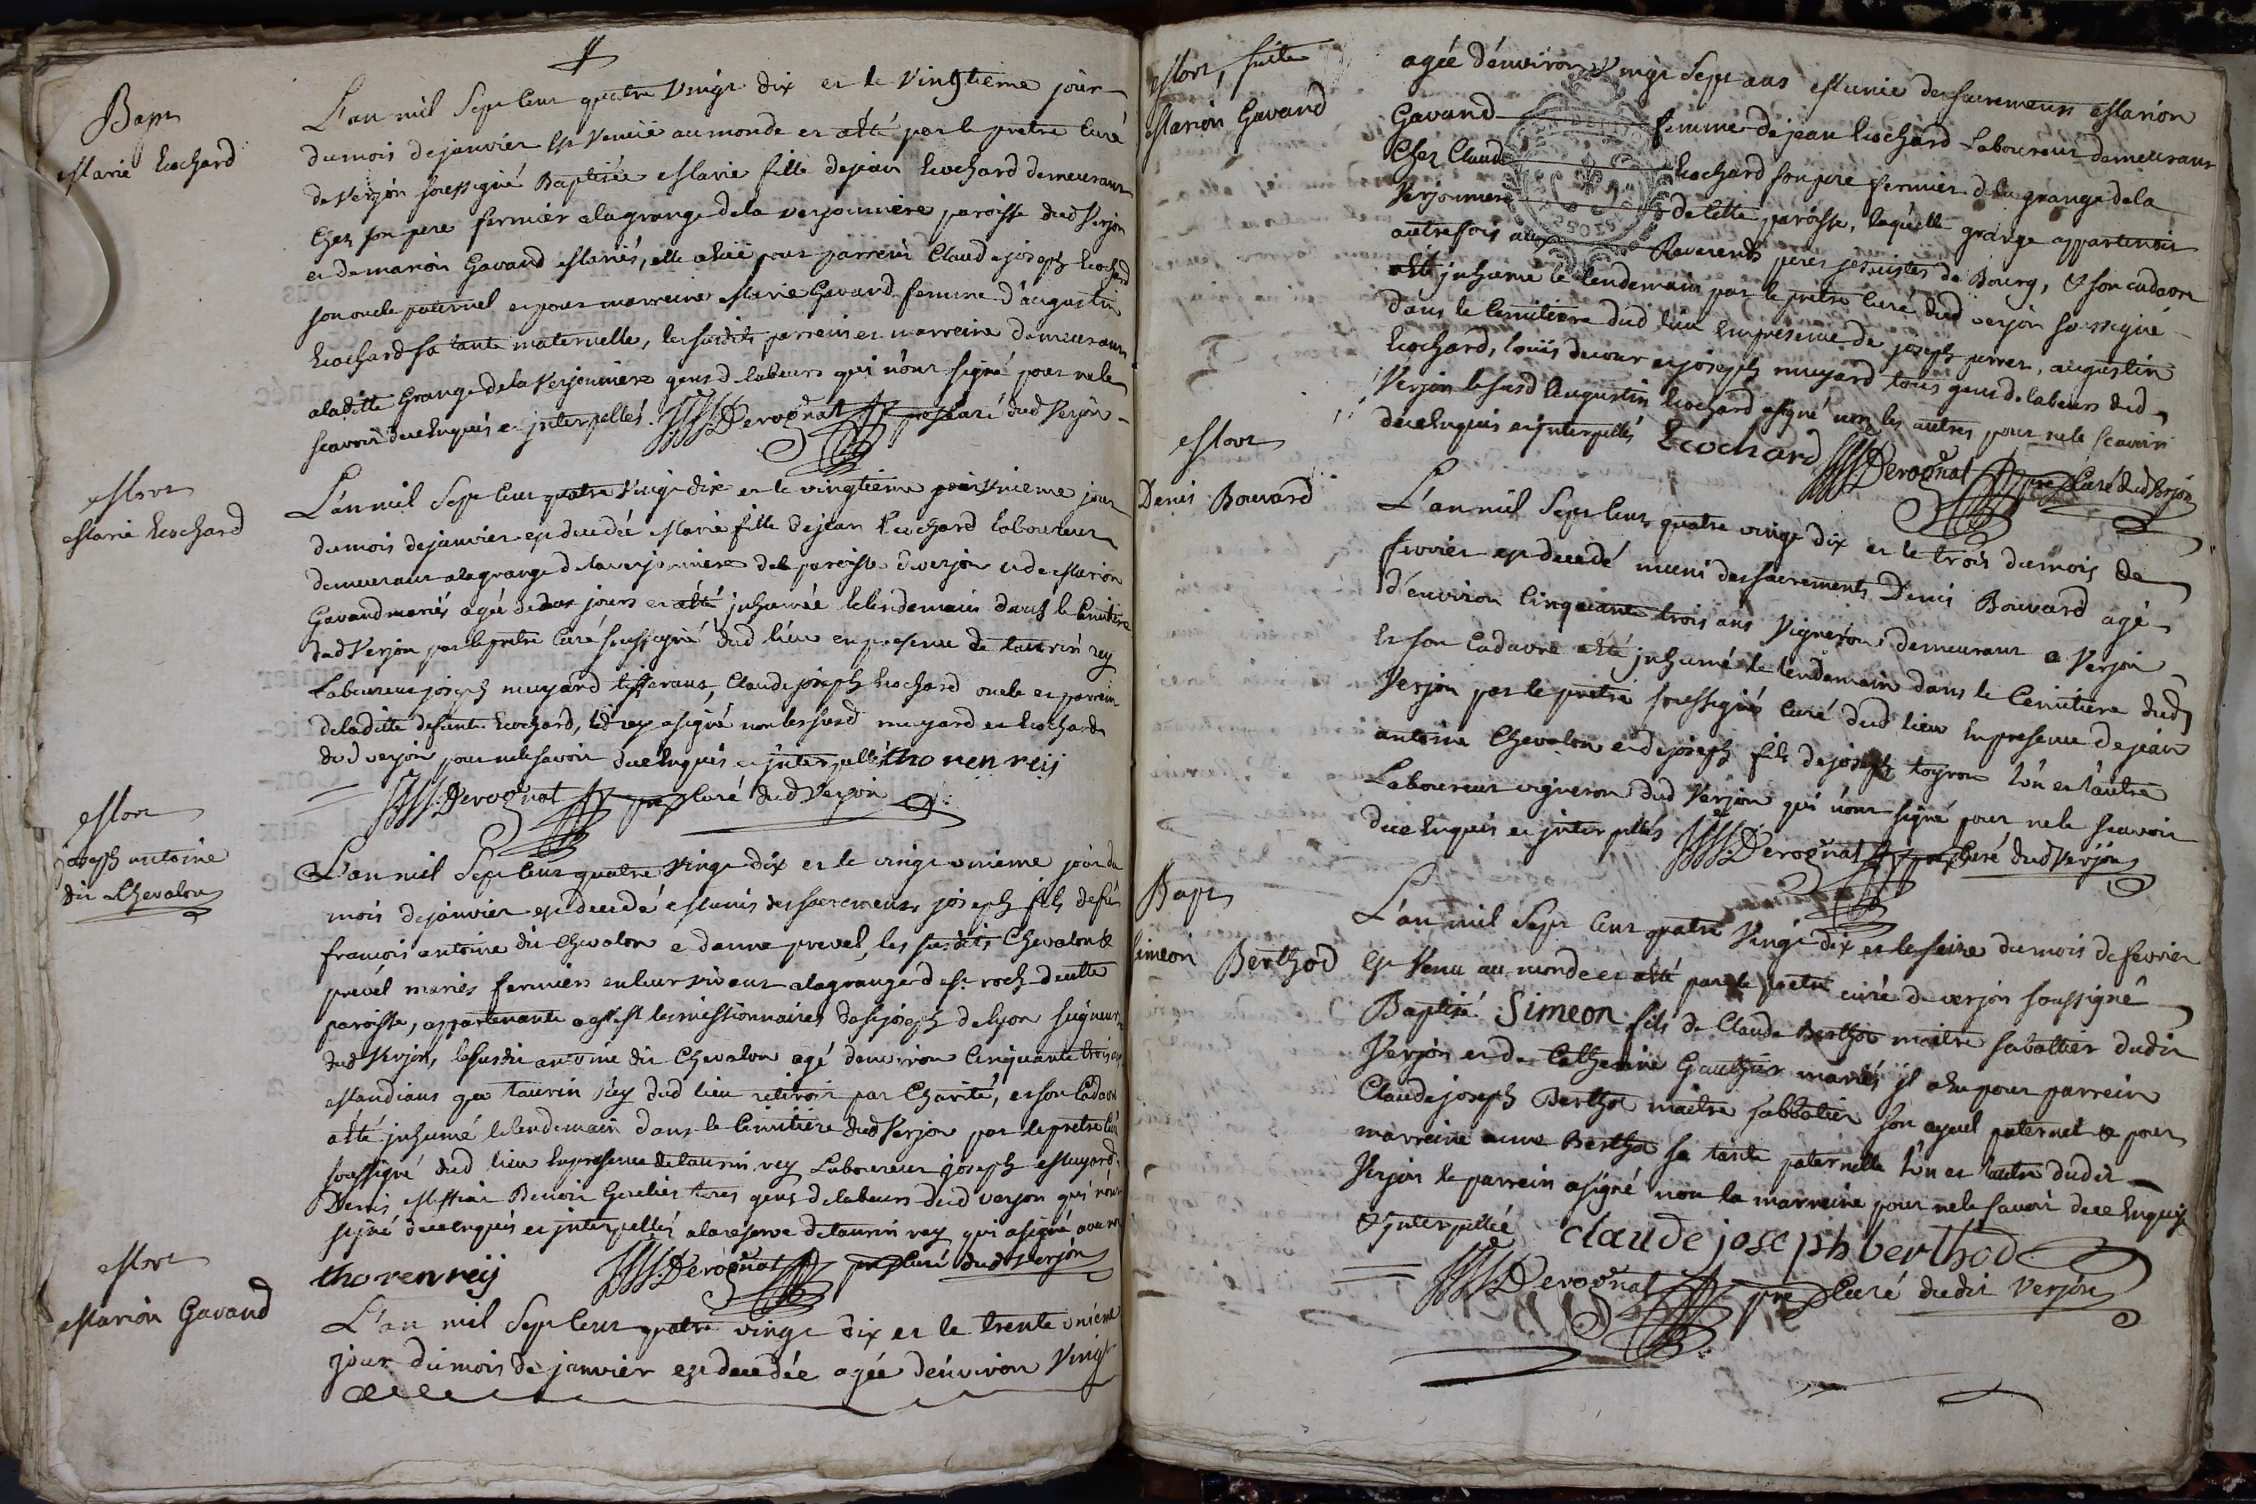 Bapt
Marie Ecochard
L'an mil Sept Cent quatre Vingt dix et le Vingtieme jour
du mois de janvier est Venuë au monde et a été par le pretre Curé
de Verjon soussigné Baptisée Marie fille de jean Ecochard demeurant
Chez son pere fermier a la grange de la verjonniere paroisse dud Verjon
et de marion Gavand Mariés, elle a heü pour parrein Claude joseph Ecochard
son oncle paternel et pour marreine Marie Gavand femme d'augustin
Ecochard sa tante maternelle, les susdits parrein et marreine demeurants
a la ditte Grange de la Verjonniere gens de labeurs qui n'ont signé pour ne le
scavoir de ce Enquis et interpellés. Derognat pre Curé dud Verjon
Mort
Marie Ecochard
L'an mil Sept Cent quatre Vingt dix et le vingtieme Vnieme jour
du mois de janvier est decedée Marie fille de jean Ecochard laboureur
demeurant a la grange de la verjonniere de la paroisse de verjon et de Marion
Gavand mariés agée de deux jours et a été inhumée le lendemain dans le Cimitiere
dud Verjon par le pretre Curé soussigné dud lieu en presence de taurin rey
Laboureur joseph muyard tisserant, Claude joseph Ecochard oncle et parrein
de la ditte defunte Ecochard, led rey a signé non les susd muyard et Ecochard
dud verjon pour ne le savoir de ce Enquis et interpellés thorenreij
Derognat pre Curé dud Verjon
Mort
joseph antoine
dit Chevalon
L'an mil Sept Cent quatre Vingt dix et le vingt vnieme jour du
mois de janvier est decedé Munis des sacrements joseph fils de fût
francois antoine dit Chevalon et danne prevel, les susdits Chevalon &
prevel mariés fermiers en leur vivant a la grange de st roch de cette
paroisse, appartenante a Mrs les missionnaires de st joseph de lyon seigneurs
dud Verjon, le susdit antoine dit Chevalon agé denviron Cinquante trois ans
Mandiant que taurin Rey dud lieu retiroit par Charité, et son Cadavre
a été inhumé le lendemain dans le Cimitiere dud Verjon par le pretre Curé
soussigné dud lieu En presence de taurin rey Laboureur joseph Muyard,
Denis Benoit Gerelier tous gens de labeurs dud verjon qui n'ont
signé de ce Enquis et interpellés a la reserve de taurin rey qui a signé avec nous
thorenreij Derognat pre Curé dud Verjon
Mort
Marion Gavand
L'an mil Sept Cent quatre vingt dix et le trente vnieme
jour du mois de janvier est decedée agée d'environ Vingt
Mort, suite
Marion Gavand
agée d'environ Vingt Sept ans Munie des sacrements Marion
Gavand femme de jean Ecochard Laboureur demeurant
Chez Claude Ecochard son pere fermier de la grange de la
Verjonniere de cette paroisse, laquelle grange appartenoit
autrefois aux Reverends peres jesuistes de Bourg, & son cadavre
a été inhumé le lendemain par le pretre Curé dud verjon soussigné
dans le Cimitiere dud lieu En presence de joseph perret, augustin
Ecochard, louis decour et joseph muyard tous gens de labeurs dud
Verjon le susd augustin Ecochard a signé non les autres pour ne le scavoir
de ce Enquis et interpellés Ecochard Derognat pre Curé dud Verjon
Mort
Denis Bouvard
L'an mil Sept Cent quatre vingt dix et le trois du mois de
fevrier est decedé muni des sacrements Denis Bouvard agé
d'environ Cinquante trois ans Vigneron demeurant a Verjon
Et son Cadavre a été inhumé le lendemain dans le Cimitiere dud
Verjon par le pretre soussigné curé dud lieu En presence de jean
antoine Chevalon et de joseph fils de joseph toyron l'ûn et l'autre
Laboureur vigneron dud Verjon qui n'ont signé pour ne le scavoir
de ce Enquis et interpellés Derognat pre Curé dud Verjon
Bapt
Simeon Berthod
L'an mil Sept Cent quatre Vingt dix et le seize du mois de fevrier
Est Venu au monde et a été par le pretre curé de verjon soussigné
Baptisé Simeon fils de Claude Berthod maitre sabottier dudit
Verjon et de Catherine Gauthier mariés il a heu pour parrein
Claude joseph Berthod maitre sabbotier son ayeul paternel & pour
marreine anne Berthod sa tante paternelle l'ûn et l'autre dudit
Verjon le parrein a signé non la marreine pour ne le savoir de ce Enquise
& interpellée claude joseph berthod
Derognat pre Curé dudit Verjon